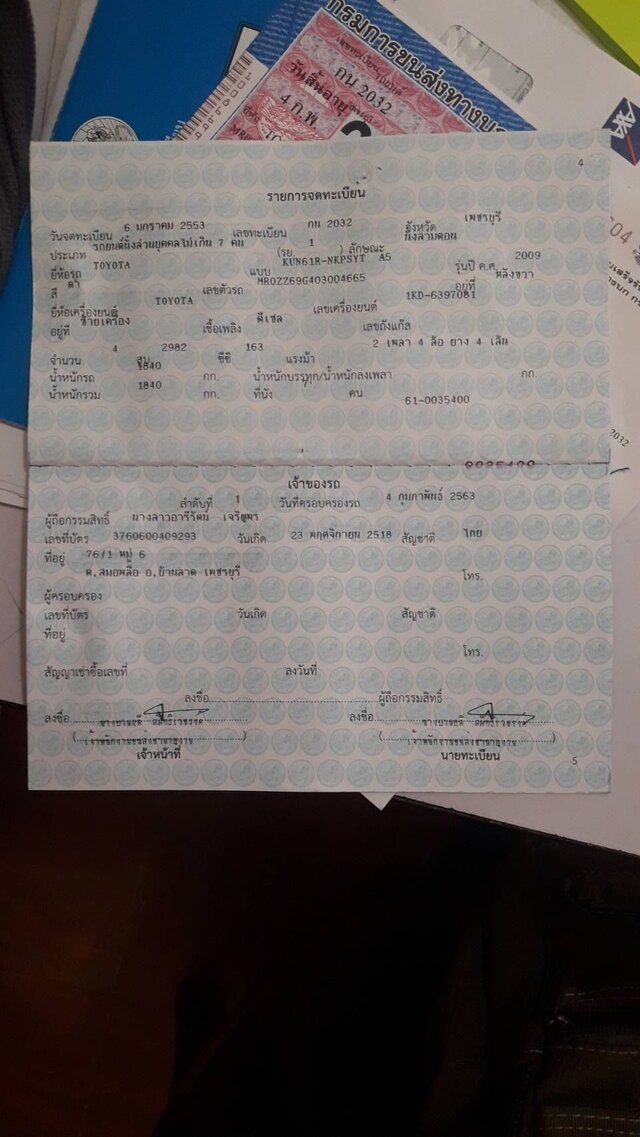 กรมการขนส่งทางบก
เลขทะเบียนรถยนต์
กน 2032
วันสิ้นอายุ
4 ก.พ.
AXA
4
รายการจดทะเบียน
วันจดทะเบียน 6 มกราคม 2553 เลขทะเบียน กน 2032 จังหวัด เพชรบุรี
ประเภท รถยนต์นั่งส่วนบุคคลไม่เกิน 7 คน (รย. 1 ) ลักษณะ นั่งสามตอน
ยี่ห้อรถ TOYOTA แบบ KUN61R-NKPSYT A5 รุ่นปี ค.ศ. 2009
สี ดำ เลขตัวรถ MROZZ69G403004665 อยู่ที่ หลังขวา
ยี่ห้อเครื่องยนต์ TOYOTA เลขเครื่องยนต์ 1KD-6397081
อยู่ที่ ซ้ายเครื่อง เชื้อเพลิง ดีเซล เลขถังแก๊ส
จำนวน 4 สูบ 2982 ซีซี 163 แรงม้า 2 เพลา 4 ล้อ ยาง 4 เส้น
น้ำหนักรถ 1840 กก. น้ำหนักบรรทุก/น้ำหนักลงเพลา กก.
น้ำหนักรวม 1840 กก. ที่นั่ง คน 61-0035400
0035400
2032
เจ้าของรถ
ลำดับที่ 1 วันที่ครอบครองรถ 4 กุมภาพันธ์ 2563
ผู้ถือกรรมสิทธิ์ นางสาวอารีรัตน์
เลขที่บัตร 3760600409293 วันเกิด 23 พฤศจิกายน 2518 สัญชาติ ไทย
ที่อยู่ 76/1 หมู่ 6
ต.สมอพลือ อ.บ้านลาด เพชรบุรี โทร.
ผู้ครอบครอง
เลขที่บัตร วันเกิด สัญชาติ
ที่อยู่
โทร.
สัญญาเช่าซื้อเลขที่ ลงวันที่
ลงชื่อ ผู้ถือกรรมสิทธิ์
ลงชื่อ ลงชื่อ
(เจ้าพนักงานขนส่งชำนาญงาน) (เจ้าพนักงานขนส่งชำนาญงาน)
เจ้าหน้าที่ นายทะเบียน
5